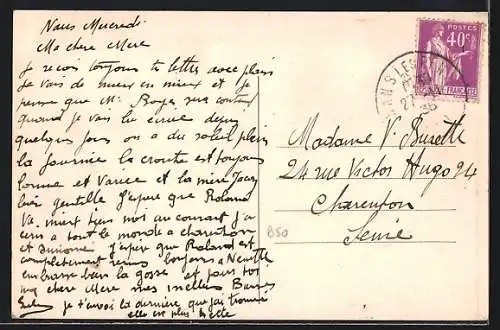 Vans Mercredi
Ma chere Mere
Je recois toujours ta lettre avec plaisir
Je vais de mieux en mieux et je
pense que Mr Roya sera content
quand je vais lui ecrire depuis
quelques jours on a du soleil plein
la journée la croute est toujours
bonne et Variee et la mère
bien gentille J'espere que Roland
Va mieux tiens moi au courant j'ai
ecris a tout le monde a charenton
et J'espere que Roland est
completement remis bonjours a Neuette
embrasse bien la gosse et pour toi
ma chere Mere mes meilleurs Baisers
je t'envoi la derniere que j'ai trouvée
elle est plus belle
POSTES
40c
REPUBLIQUE FRANÇAISE
VANS LES
27
36
Madame V. Burette
24 rue Victor Hugo 24
Charenton
Seine
B50